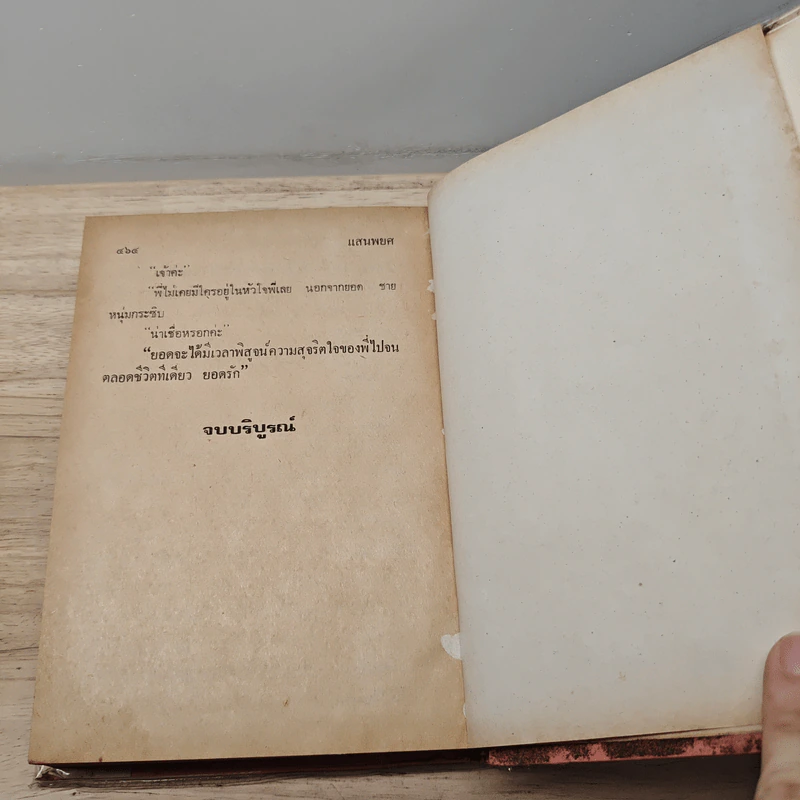 ๔๖๔ แสนพยศ
"เจ้าค่ะ"
"พี่ไม่เคยมีใครอยู่ในหัวใจพี่เลย นอกจากยอด ชาย
หนุ่มกระซิบ
"น่าเชื่อหรอกค่ะ"
"ยอดจะได้มีเวลาพิสูจน์ความสุจริตใจของพี่ไปจน
ตลอดชีวิตทีเดียว ยอดรัก"
จบบริบูรณ์